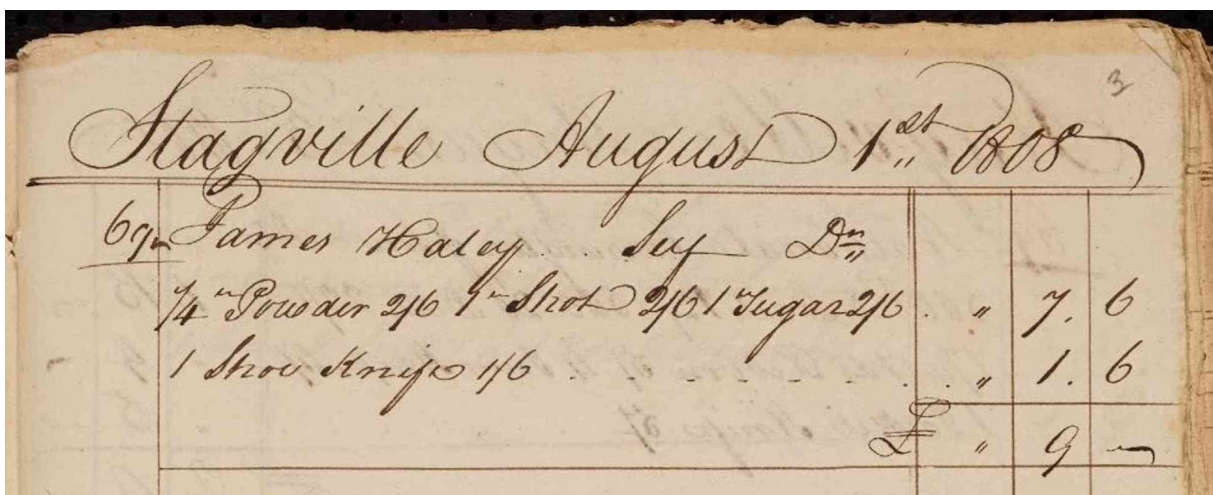 3
Stagville August 1st 1808
69 James Haley Self Dr
1/4 Powder 2/6 1 Shot 2/6 1 Sugar 2/6 . " 7. 6
1 Shoe Knife 1/6 . . . . . . . . " 1. 6
£ " 9 —